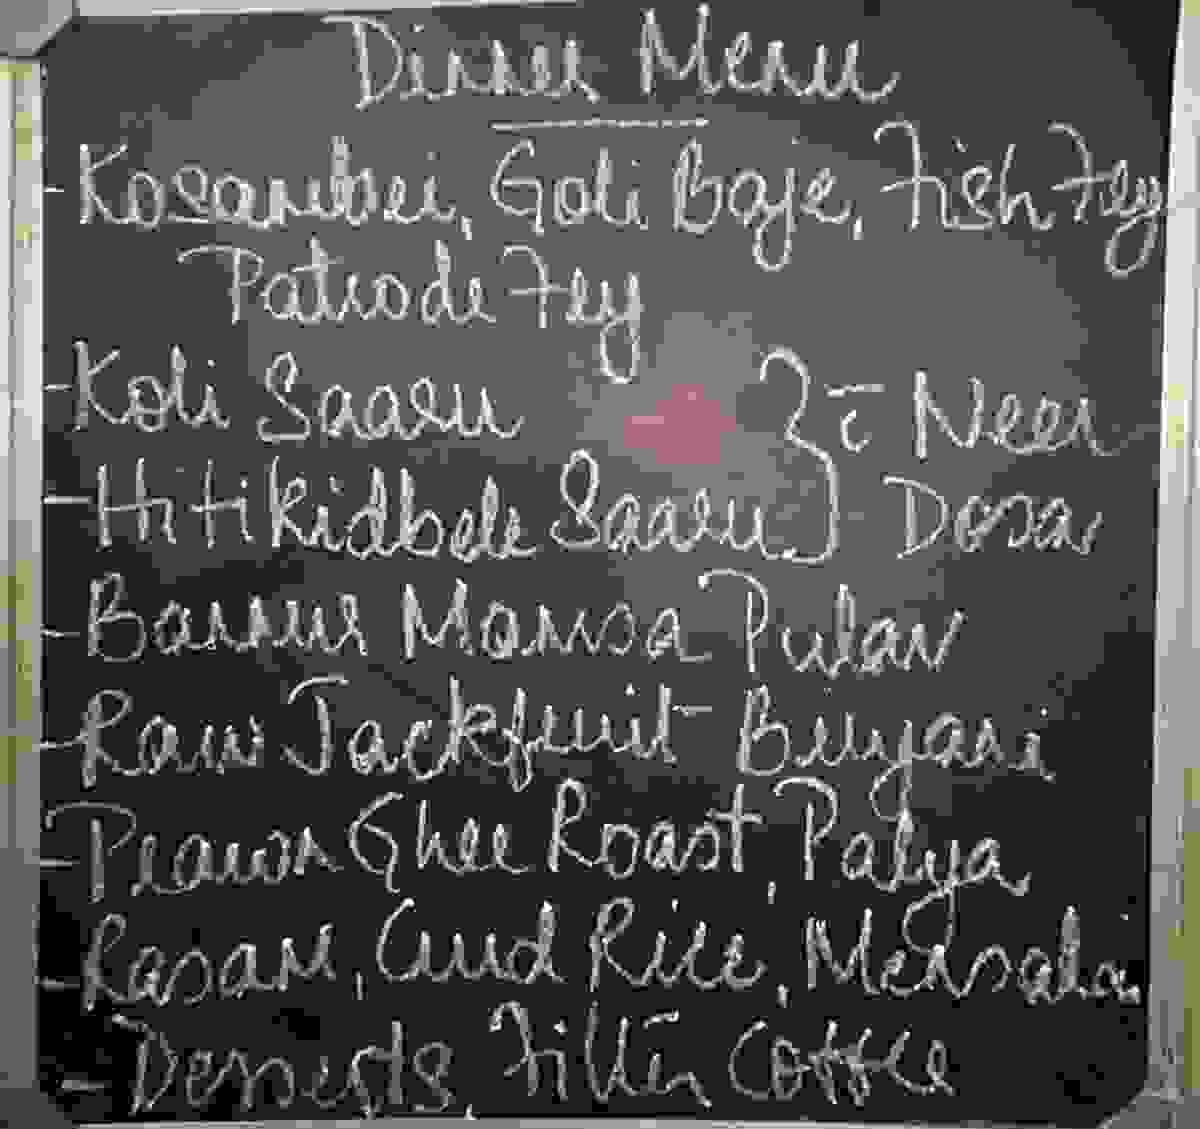 Dinner Menu
- Kosambri, Goli Baje, Fish Fry
Patrode Fry
- Koli Saaru
- Hitikidbele Saaru } c̄ Neer Dosa
- Bannur Mamsa Pulav
- Raw Jackfruit Biryani
- Prawn Ghee Roast, Palya
- Rasam, Curd Rice, Mensakai
- Desserts, Filter Coffee